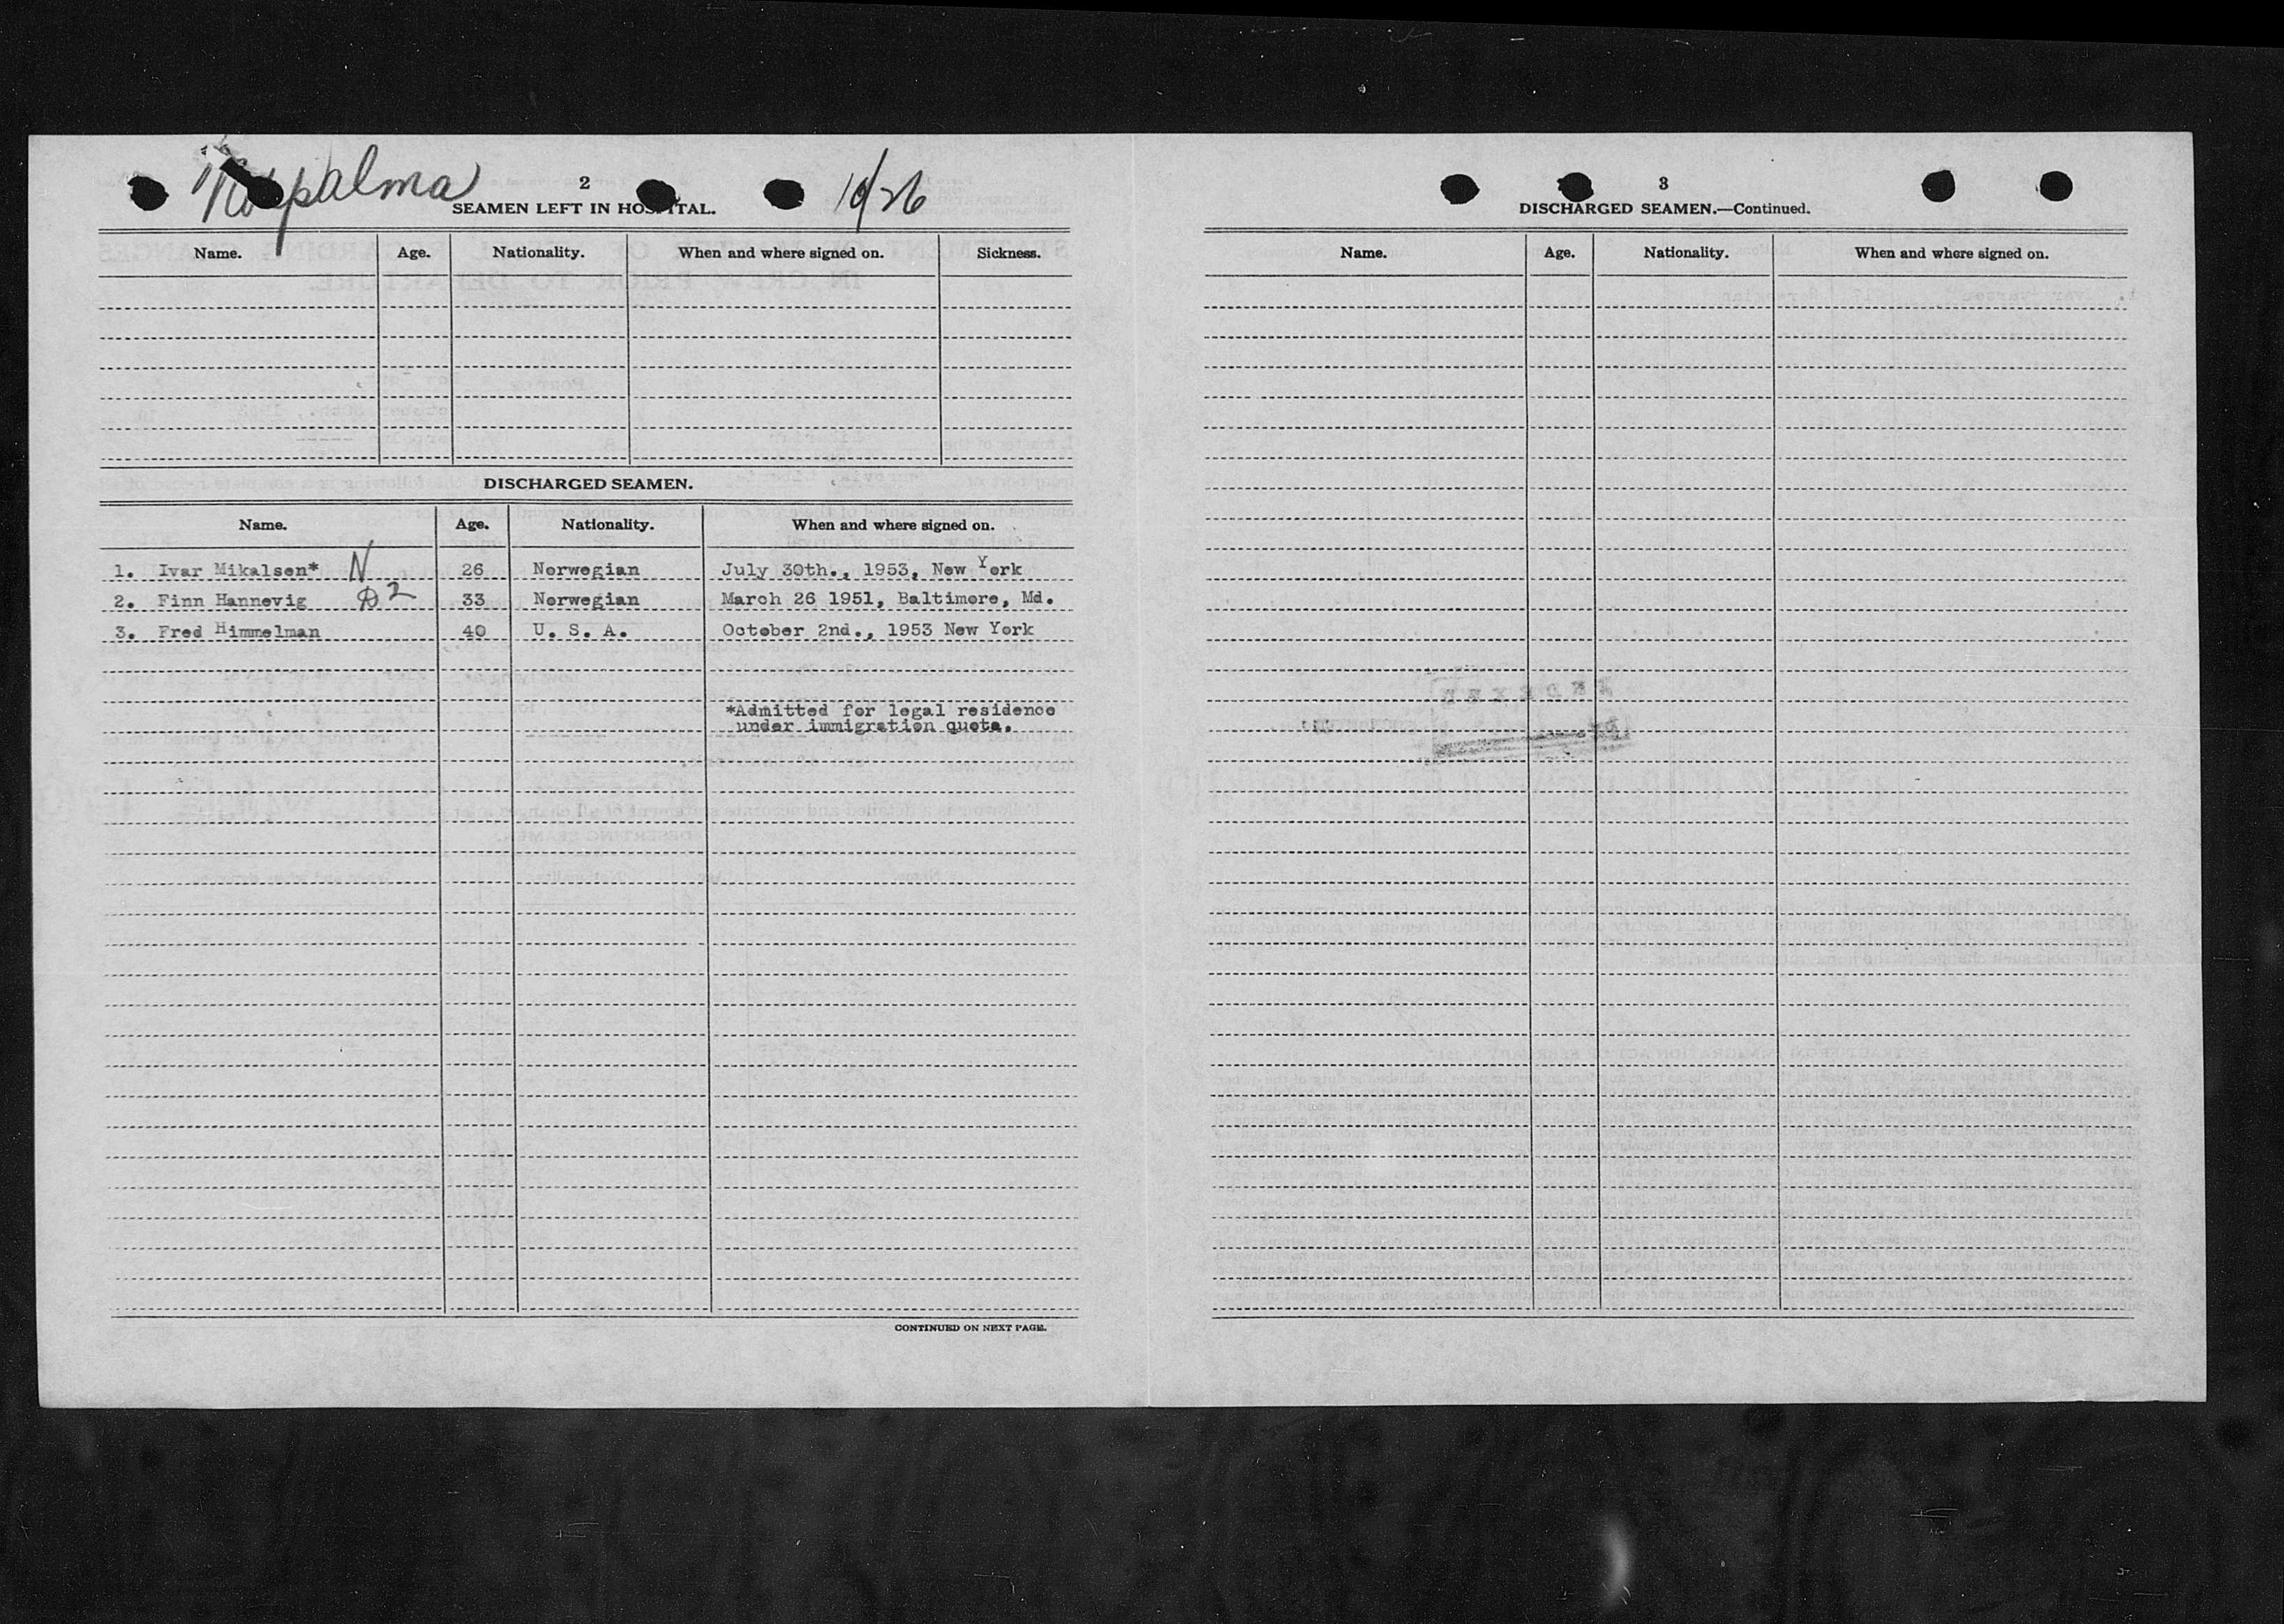 2
10/26
SEAMEN LEFT IN HOSPITAL.
Name. Age. Nationality. When and where signed on. Sickness.
DISCHARGED SEAMEN.
Name. Age. Nationality. When and where signed on.
1. Ivar Mikalsen* N 26 Norwegian July 30th., 1953, New York
2. Finn Hannevig D2 33 Norwegian March 26 1951, Baltimore, Md.
3. Fred Himmelman 40 U. S. A. October 2nd., 1953 New York
*Admitted for legal residence
under immigration quota.
CONTINUED ON NEXT PAGE.
3
DISCHARGED SEAMEN.—Continued.
Name. Age. Nationality. When and where signed on.